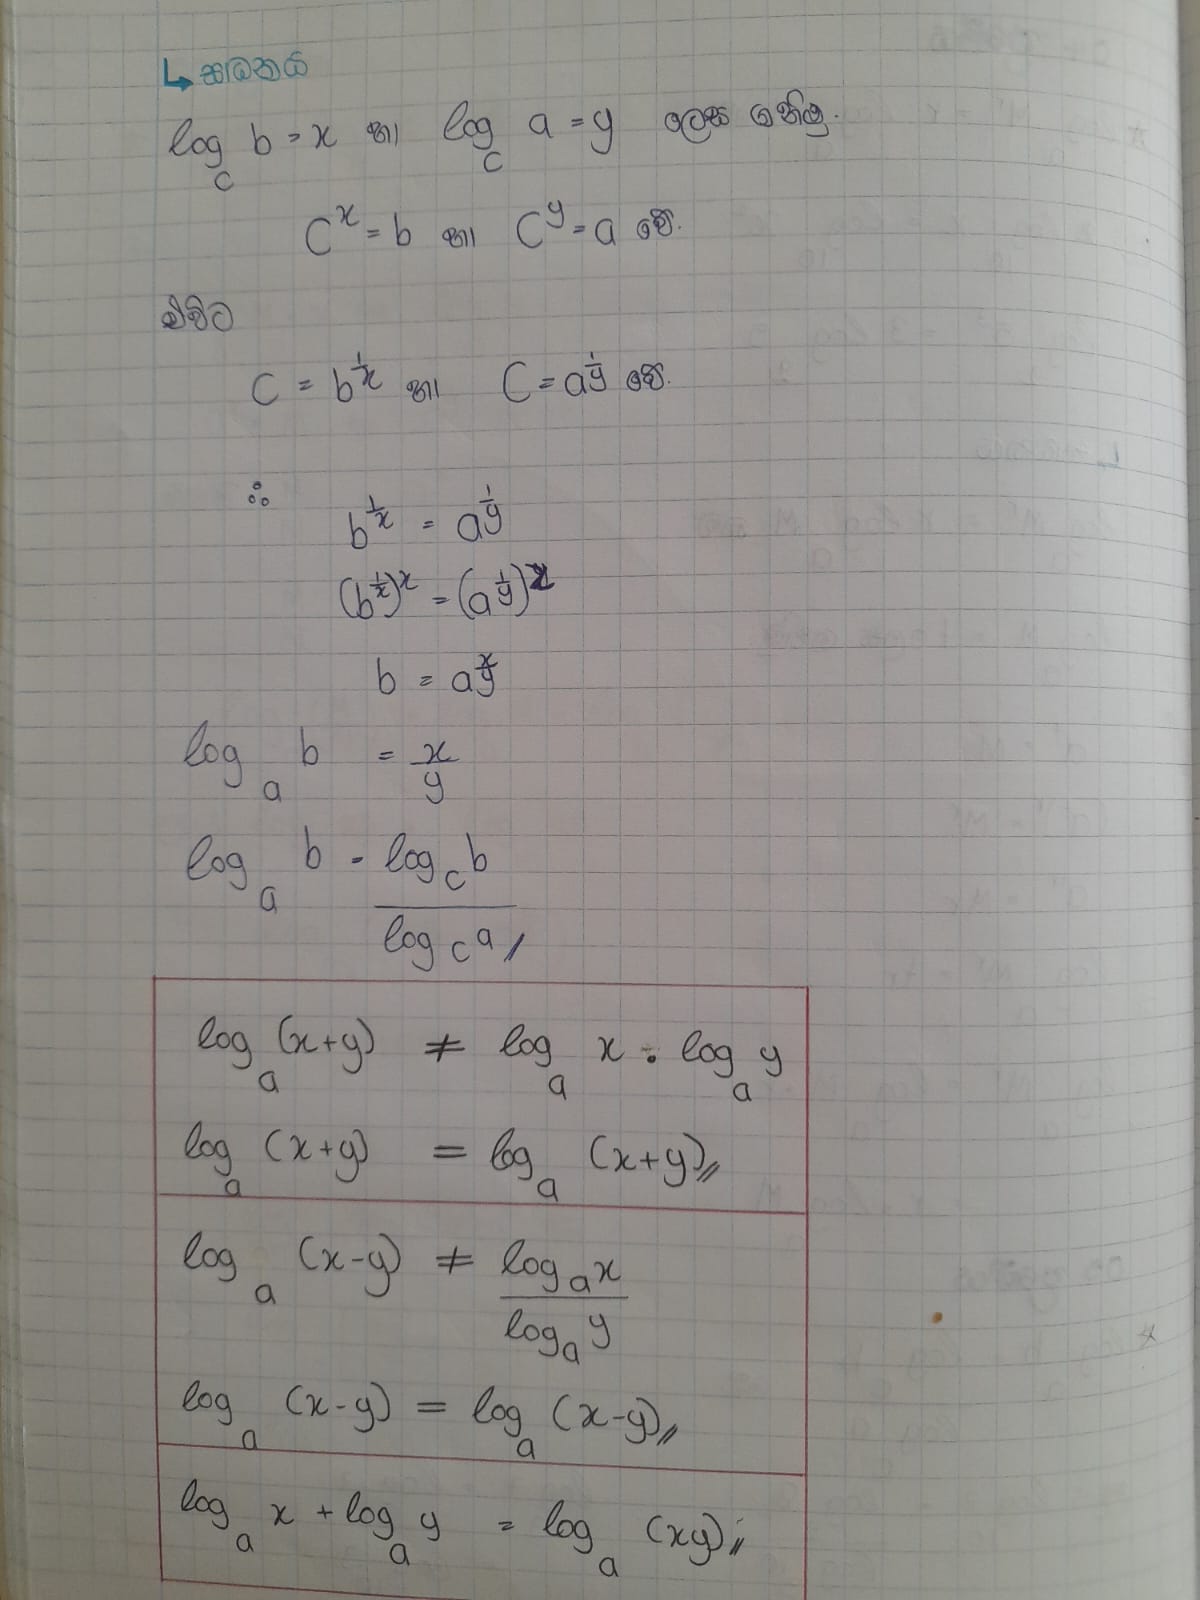 ↳ සාධනය
log_c b = x හා log_c a = y ලෙස ගනිමු.
C^x = b හා C^y = a වේ.
එවිට
C = b^(1/x) හා C = a^(1/y) වේ.
∴ b^(1/x) = a^(1/y)
(b^(1/x))^x = (a^(1/y))^x
b = a^(x/y)
log_a b = x/y
log_a b = log_c b / log_c a //
log_a (x+y) ≠ log_a x . log_a y
log_a (x+y) = log_a (x+y) //
log_a (x-y) ≠ log_a x / log_a y
log_a (x-y) = log_a (x-y) //
log_a x + log_a y = log_a (xy) //